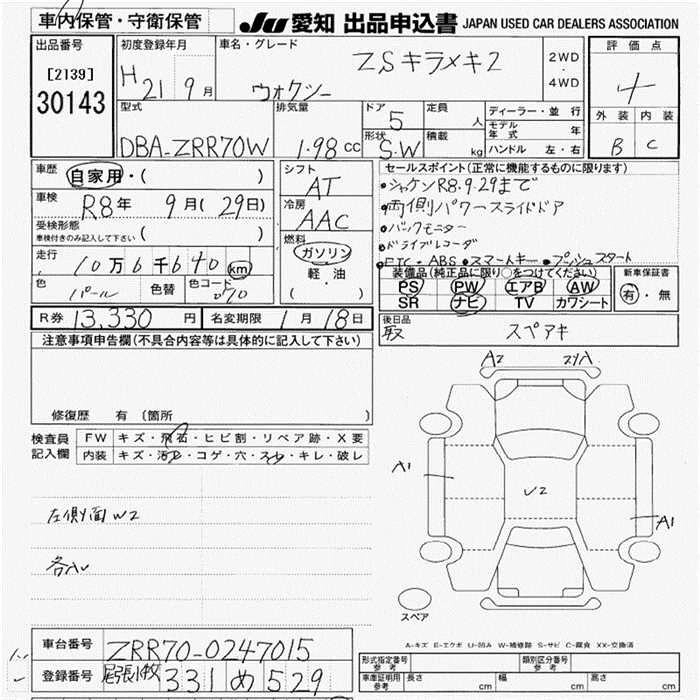 車内保管・守衛保管
JU 愛知 出品申込書 JAPAN USED CAR DEALERS ASSOCIATION
出品番号
[2139]
30143
初度登録年月
H 21 9月
車名・グレード
ZSキラメキ2
ウォクシー
2WD
・
4WD
評価点
4
外装 内装
B C
型式
DBA-ZRR70W
排気量
1.98 CC
ドア
5
形状
S.W
定員
人
積載
kg
ディーラー・並行
モデル年式 年
ハンドル 左・右
車歴
自家用・( )
車検
R8年 9月(29日)
受検形態
車検付きのみ記入して下さい ( )
走行
10万6千640 km
色
パール
色替
色コード
070
シフト
AT
冷房
AAC
燃料
ガソリン
軽・油
( )
セールスポイント(正常に機能するものに限ります)
・シャケンR8.9.29まで
・両側パワースライドドア
・バックモニター
・ドライブレコーダ
・ETC・ABS・スマートキー・プッシュスタート
装備品(純正品に限り○をつけてください)
PS PW エアB AW
SR ナビ TV カワシート
新車保証書
有・無
R券 13,330 円
名変期限 1月18日
後日品
取 スペアキ
注意事項申告欄(不具合内容等は具体的に記入して下さい)
修復歴 有(箇所 )
検査員
記入欄
FW キズ・飛石・ヒビ割・リペア跡・X要
内装 キズ・汚レ・コゲ・穴・スレ・キレ・破レ
左側面W2
各ハル
A2
A1
U2
A1
スペア
A-キズ E-エクボ U-凹み W-補修跡 S-サビ C-腐食 XX-交換済
車台番号 ZRR70-0247015
登録番号 尾張小牧 331 め 529
形式指定番号
参考
類別区分番号
参考
車庫証明用
参考
長さ cm 幅 cm 高さ cm